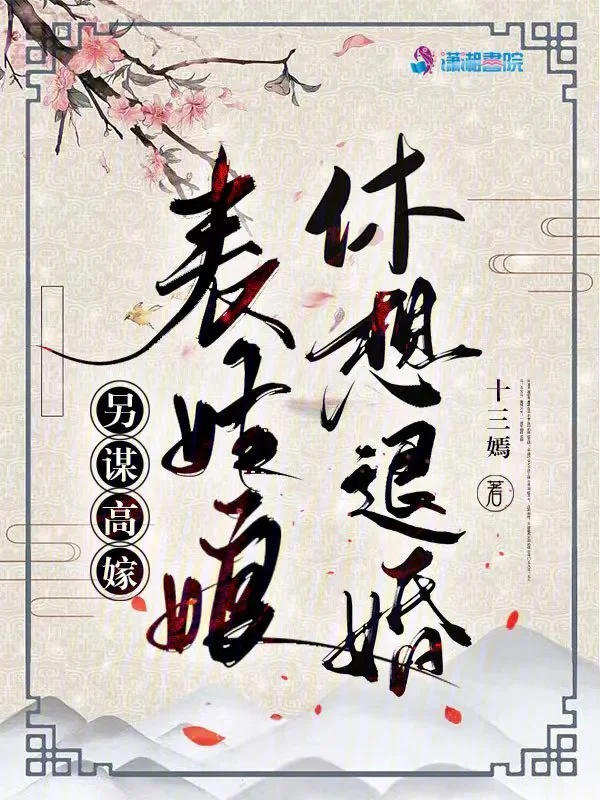 潇湘書院
休想退婚
表姑娘
另谋高嫁
十三嫣
著